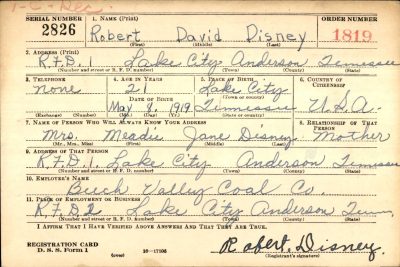 1-C-Dec
SERIAL NUMBER 1. NAME (Print) ORDER NUMBER
2826 Robert David Disney 1819
(First) (Middle) (Last)
2. ADDRESS (Print)
R.F.D. 1 Lake City Anderson Tennessee
(Number and street or R. F. D. number) (Town) (County) (State)
3. TELEPHONE 4. AGE IN YEARS 5. PLACE OF BIRTH 6. COUNTRY OF CITIZENSHIP
None 21 Lake City
DATE OF BIRTH (Town or county)
May 9, 1919 Tennessee U.S.A.
(Exchange) (Number) (Mo.) (Day) (Yr.) (State or country)
7. NAME OF PERSON WHO WILL ALWAYS KNOW YOUR ADDRESS 8. RELATIONSHIP OF THAT PERSON
Mrs. Meadie Jane Disney Mother
(Mr., Mrs., Miss) (First) (Middle) (Last)
9. ADDRESS OF THAT PERSON
R.F.D. 1. Lake City Anderson Tennessee
(Number and street or R. F. D. number) (Town) (County) (State)
10. EMPLOYER'S NAME
Beech Valley Coal Co.
11. PLACE OF EMPLOYMENT OR BUSINESS
R.F.D. 2 Lake City Anderson Tenn.
(Number and street or R. F. D. number) (Town) (County) (State)
I AFFIRM THAT I HAVE VERIFIED ABOVE ANSWERS AND THAT THEY ARE TRUE.
REGISTRATION CARD
D. S. S. Form 1 (over) 16—17105 Robert. Disney.
(Registrant's signature)